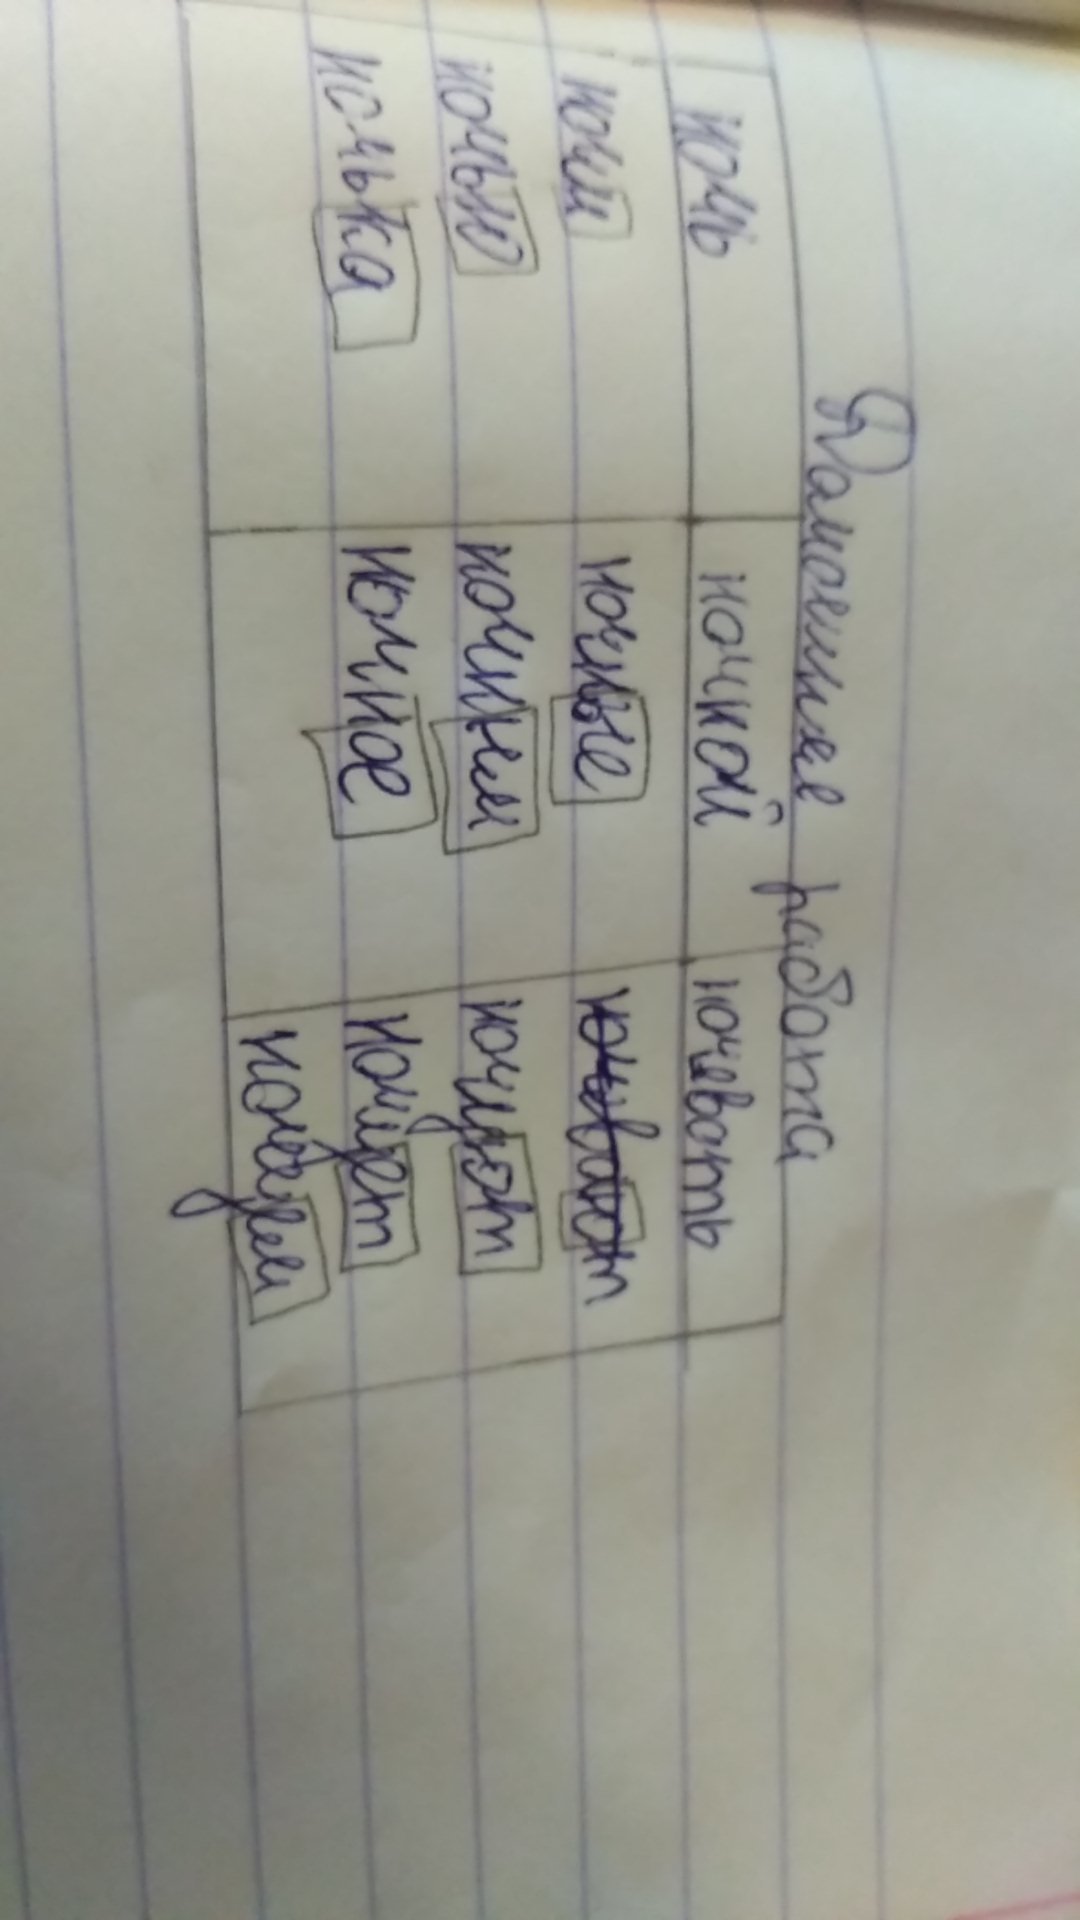 Домашняя работа
ночь ночной ночевать
ночи ночные
ночью ночным ночуют
ночька ночное ночует
ночуем